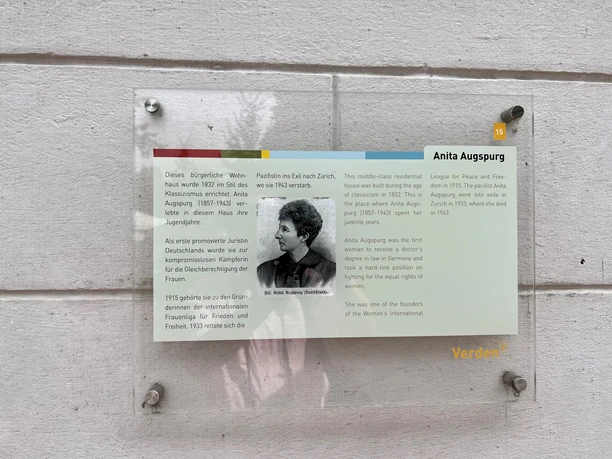 15
Anita Augspurg
Dieses bürgerliche Wohn-
haus wurde 1832 im Stil des
Klassizismus errichtet. Anita
Augspurg (1857-1943) ver-
lebte in diesem Haus ihre
Jugendjahre.
Als erste promovierte Juristin
Deutschlands wurde sie zur
kompromisslosen Kämpferin
für die Gleichberechtigung der
Frauen.
1915 gehörte sie zu den Grün-
derinnen der internationalen
Frauenliga für Frieden und
Freiheit. 1933 rettete sich die
Pazifistin ins Exil nach Zürich,
wo sie 1943 verstarb.
Frl. Anita Augspurg (Deutschland).
This middle-class residential
house was built during the age
of classicism in 1832. This is
the place where Anita Augs-
purg (1857-1943) spent her
juvenile years.
Anita Augspurg was the first
woman to receive a doctor's
degree in law in Germany and
took a hard-line position on
fighting for the equal rights of
women.
She was one of the founders
of the Women's International
League for Peace and Free-
dom in 1915. The pacifist Anita
Augspurg went into exile in
Zurich in 1933, where she died
in 1943.
Verden